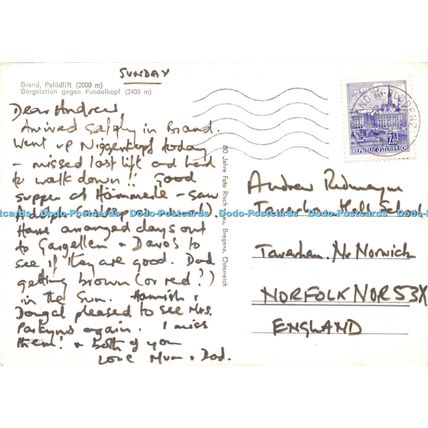 SUNDAY
Brand, Palüdlift (2000 m)
Bergstation gegen Fundelkopf (2403 m)
Dear Andrew
Arrived safely in Brand.
Went up Niggenkopf today
- missed last lift and had
to walk down!! Good
supper at Hämmerle - saw
Have arranged days out
to Gargellen & Davos to
see if they are good. Dad
getting brown (or red?)
in the Sun. Hamish &
Dougal pleased to see Mrs.
again. I miss
them! & both of you
Love Mum & Dad.
Foto Risch-Lau, Bregenz, Österreich
REPUBLIK ÖSTERREICH
Andrew
Taverham Hall School
Taverham. Nr Norwich
NORFOLK NOR 53X
ENGLAND
Dodo-Postcards Dodo-Postcards Dodo-Postcards Dodo-Postcards